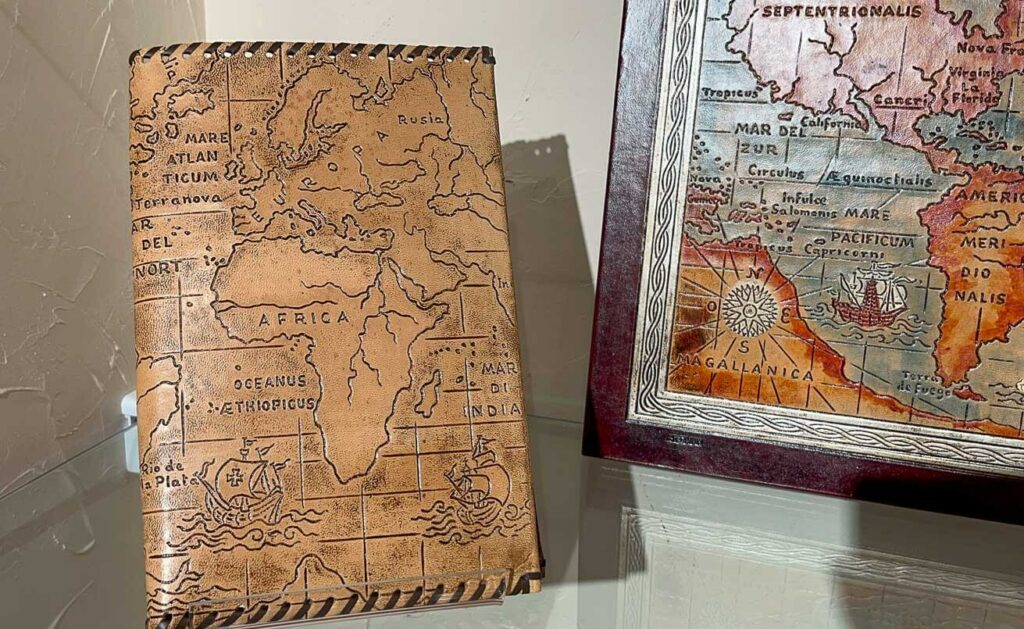 Rusia
MARE
ATLAN
TICUM
EUROPA
Terranova
AR
DEL
NORT
In
AFRICA
OCEANUS
ÆTHIOPICUS
MAR
DI
INDIA
Rio de
la Plata
SEPTENTRIONALIS
Nova Fra
Virginia
La
Florida
Tropicus
Cancri
California
MAR DEL
ZUR
Circulus Æquinoctialis
Nova
Infulæ
Salomonis
MARE
PACIFICUM
AMERIC
MERI
DIO
NALIS
Tropicus Capricorni
N
O E
S
MAGALLANICA
Terra
de Fuego